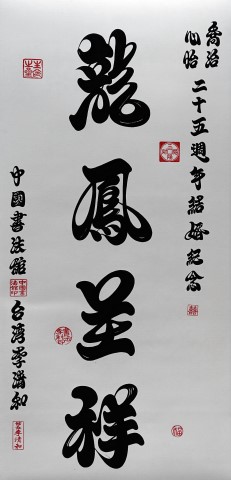 喬治
心怡 二十五週年結婚紀念
龍鳳呈祥
中國書法館 台灣李清和